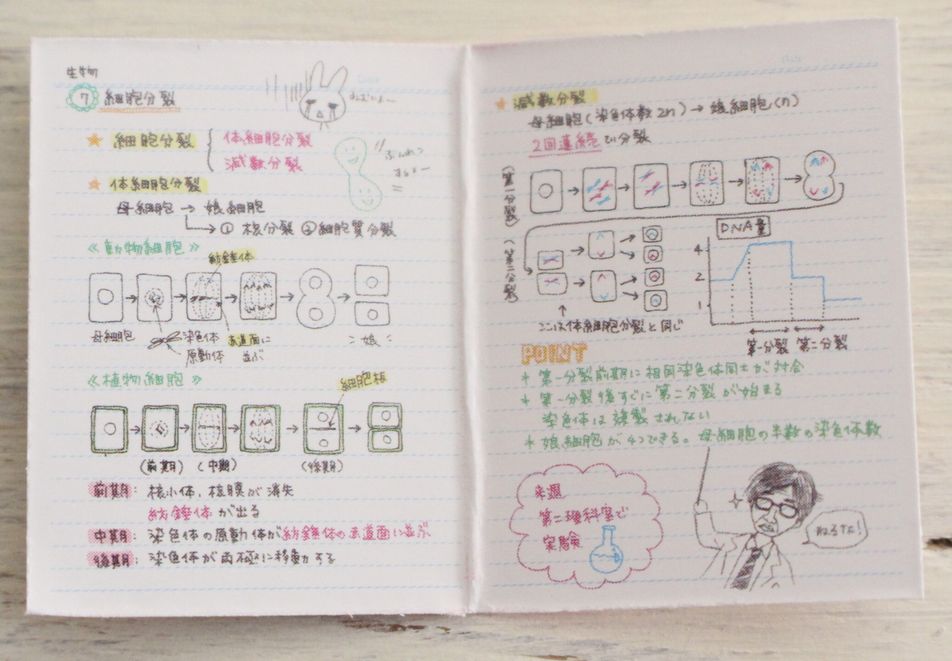 生物
⑦ 細胞分裂
ねむいよー
★ 細胞分裂
体細胞分裂
減数分裂
ぶんれつ
するよー
★ 体細胞分裂
母細胞 → 娘細胞
→ ① 核分裂 ② 細胞質分裂
≪動物細胞≫
紡錘体
母細胞
染色体
原動体
赤道面に
並ぶ
娘
≪植物細胞≫
細胞板
(前期) (中期) (後期)
前期: 核小体、核膜が消失
紡錘体が出る
中期: 染色体の原動体が紡錘体の赤道面に並ぶ
後期: 染色体が両極に移動する
★ 減数分裂
母細胞(染色体数2n) → 娘細胞(n)
2回連続で分裂
(第一分裂)
(第二分裂)
ここは体細胞分裂と同じ
DNA量
4
2
1
第一分裂 第二分裂
POINT
* 第一分裂前期に相同染色体同士が対合
* 第一分裂後すぐに第二分裂が始まる
染色体は複製されない
* 娘細胞が4つできる。母細胞の半数の染色体数
来週
第二理科室で
実験
ねるなよ!